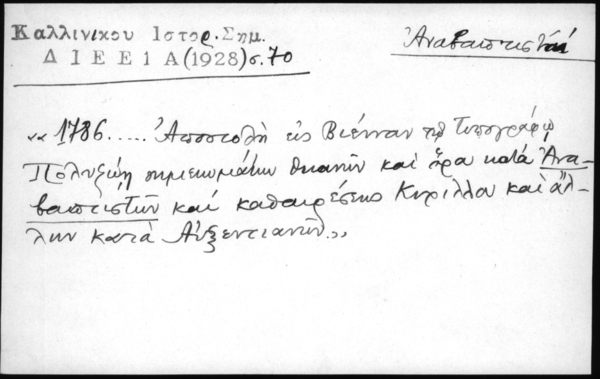 Καλλινικου Ιστορ. Σημ.
Δ Ι Ε Ε 1 Α (1928) σ. 70
Ἀναβαπτισταί
«1786..... Ἀποστολὴ εἰς Βιέννην τῷ Τυπογράφῳ
Πολυζώη σημειωμάτων καὶ ἄρα κατὰ Ἀνα-
βαπτιστῶν καὶ καθαιρέσεως Κυρίλλου καὶ ἄλ-
λων κατὰ Αὐξεντιανῶν»